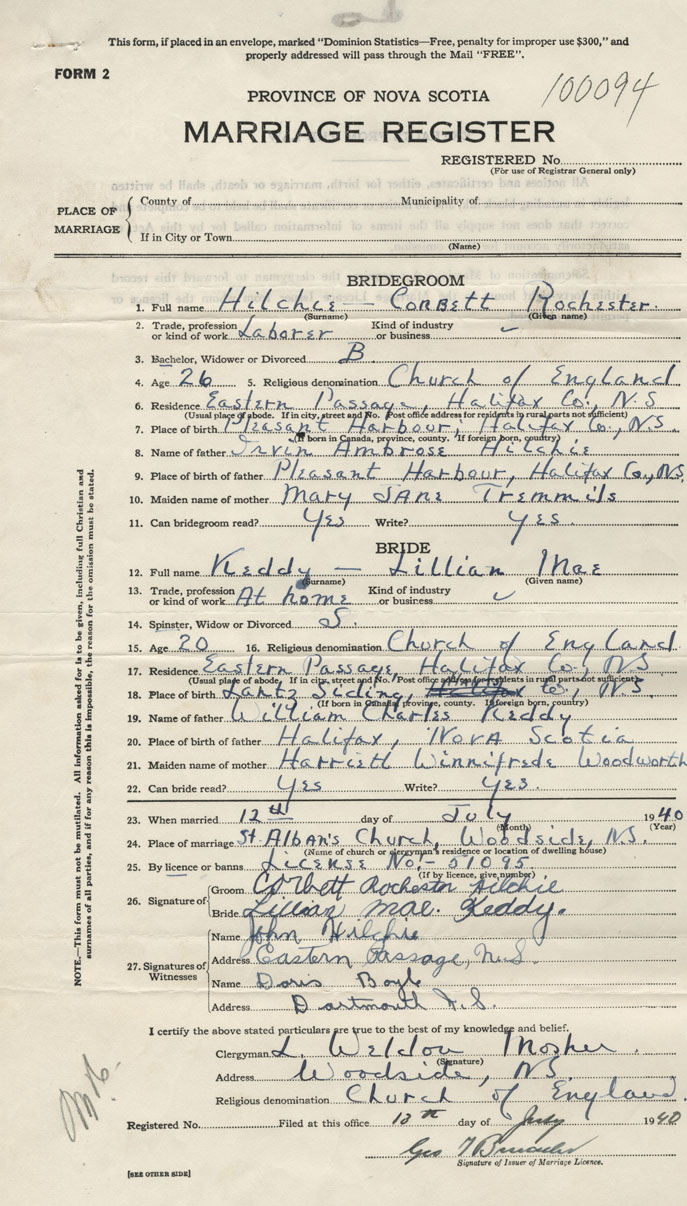 This form, if placed in an envelope, marked "Dominion Statistics—Free, penalty for improper use $300," and
properly addressed will pass through the Mail "FREE".
FORM 2
100094
PROVINCE OF NOVA SCOTIA
MARRIAGE REGISTER
REGISTERED No.
(For use of Registrar General only)
PLACE OF MARRIAGE
County of Municipality of
If in City or Town
(Name)
BRIDEGROOM
1. Full name Hilchie — Corbett Rochester.
(Surname) (Given name)
2. Trade, profession or kind of work Laborer Kind of industry or business
3. Bachelor, Widower or Divorced B.
4. Age 26 5. Religious denomination Church of England
6. Residence Eastern Passage, Halifax Co., N.S
(Usual place of abode. If in city, street and No. Post office address for residents in rural parts not sufficient)
7. Place of birth Pleasant Harbour, Halifax Co., N.S.
(If born in Canada, province, county. If foreign born, country)
8. Name of father Irvin Ambrose Hilchie
9. Place of birth of father Pleasant Harbour, Halifax Co., N.S.
10. Maiden name of mother Mary Jane Tremmils
11. Can bridegroom read? Yes Write? Yes.
BRIDE
12. Full name Keddy — Lillian Mae
(Surname) (Given name)
13. Trade, profession or kind of work At home Kind of industry or business
14. Spinster, Widow or Divorced S.
15. Age 20 16. Religious denomination Church of England
17. Residence Eastern Passage, Halifax Co., N.S
(Usual place of abode. If in city, street and No. Post office address for residents in rural parts not sufficient)
18. Place of birth Lantz Siding, Halifax Co., N.S.
(If born in Canada, province, county. If foreign born, country)
19. Name of father William Charles Keddy
20. Place of birth of father Halifax, Nova Scotia
21. Maiden name of mother Harriett Winnifrede Woodworth
22. Can bride read? Yes Write? Yes.
23. When married 12th day of July 1940
(Month) (Year)
24. Place of marriage St Alban's Church, Woodside, N.S.
(Name of church or clergyman's residence or location of dwelling house)
25. By licence or banns License No:- 51095
(If by licence, give number)
26. Signature of
Groom Corbett Rochester Hilchie
Bride Lillian Mae. Keddy.
27. Signatures of Witnesses
Name John Hilchie
Address Eastern Passage, N.S.
Name Doris Boyle
Address Dartmouth N.S.
I certify the above stated particulars are true to the best of my knowledge and belief.
Clergyman L. Weldon Mosher.
(Signature)
Address Woodside, N.S.
Religious denomination Church of England.
Registered No. Filed at this office 13th day of July 1940
Geo T
Signature of Issuer of Marriage Licence.
[SEE OTHER SIDE]
NOTE.—This form must not be mutilated. All information asked for is to be given, including full Christian and
surnames of all parties, and if for any reason this is impossible, the reason for the omission must be stated.